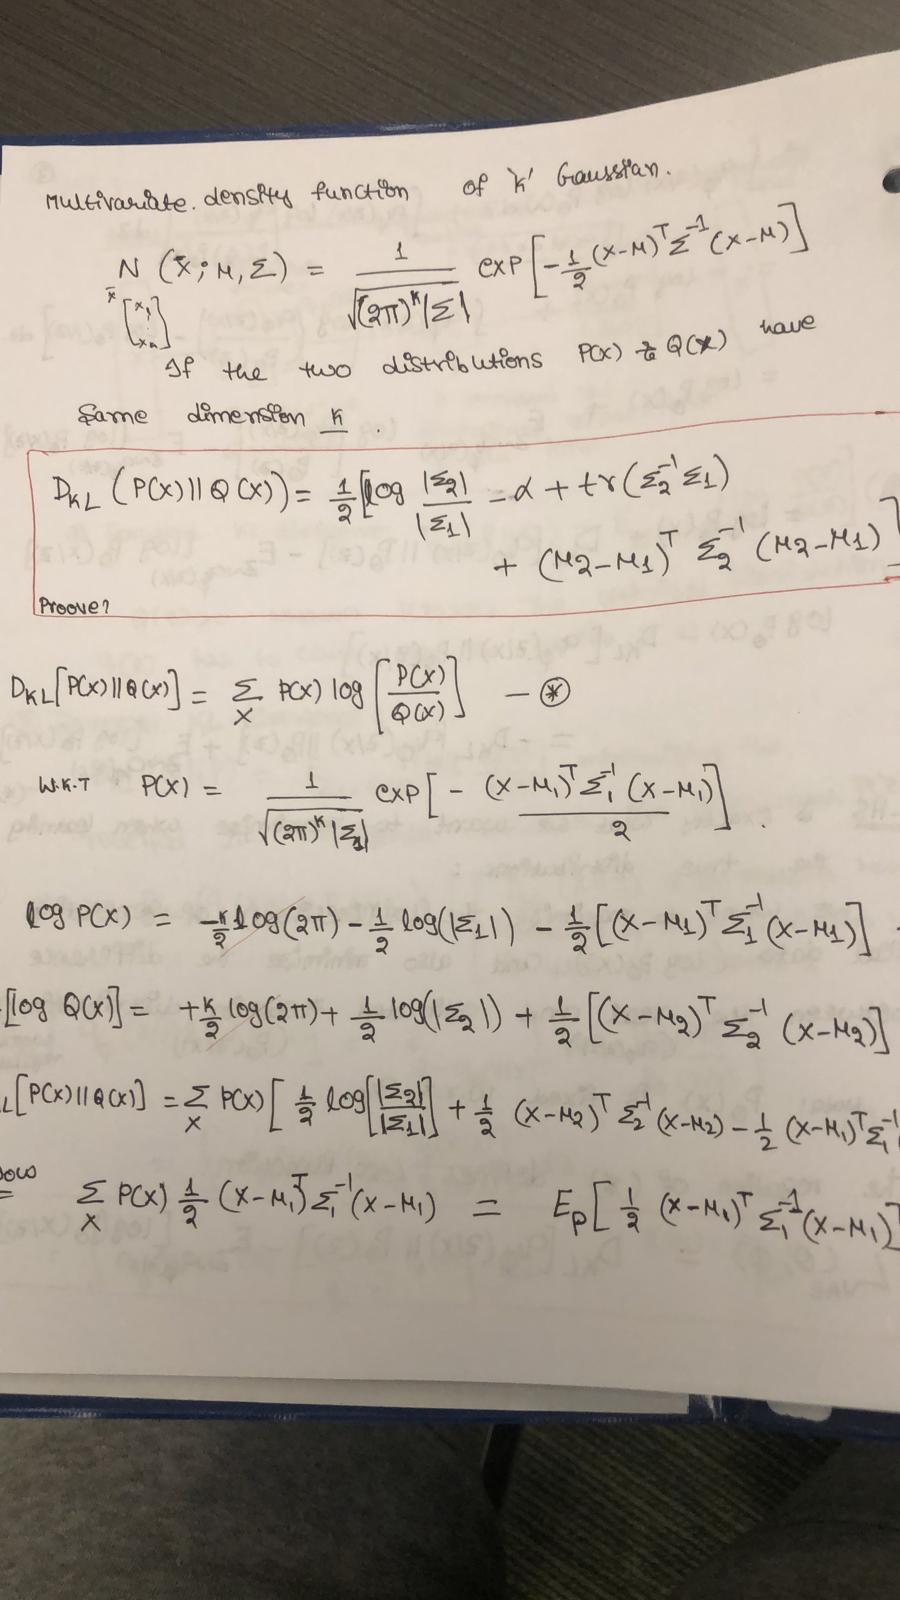 Multivariate density function of 'K' Gaussian.
N (x̄; μ, Σ) = 1/√((2π)^K |Σ|) exp[-1/2 (x-μ)^T Σ^-1 (x-μ)]
x̄ [x₁ ⋮ xₙ]
If the two distributions P(x) & Q(x) have
Same dimension K.
D_KL (P(x) || Q(x)) = 1/2 [log |Σ₂|/|Σ₁| - d + tr(Σ₂^-1 Σ₁)
+ (μ₂-μ₁)^T Σ₂^-1 (μ₂-μ₁)]
Proove?
D_KL [P(x) || Q(x)] = Σ_x P(x) log [P(x)/Q(x)] — ⊛
W.K.T P(x) = 1/√((2π)^K |Σ₁|) exp[- (x-μ₁)^T Σ₁^-1 (x-μ₁)/2].
log P(x) = -K/2 log(2π) - 1/2 log(|Σ₁|) - 1/2 [(x-μ₁)^T Σ₁^-1 (x-μ₁)]
-[log Q(x)] = +K/2 log(2π) + 1/2 log(|Σ₂|) + 1/2 [(x-μ₂)^T Σ₂^-1 (x-μ₂)]
L[P(x) || Q(x)] = Σ_x P(x) [1/2 log[|Σ₂|/|Σ₁|] + 1/2 (x-μ₂)^T Σ₂^-1 (x-μ₂) - 1/2 (x-μ₁)^T Σ₁^-1
Σ_x P(x) 1/2 (x-μ₁)^T Σ₁^-1 (x-μ₁) = E_p [1/2 (x-μ₁)^T Σ₁^-1 (x-μ₁)]